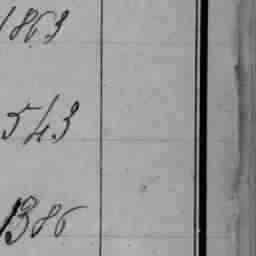 1863
543
1386